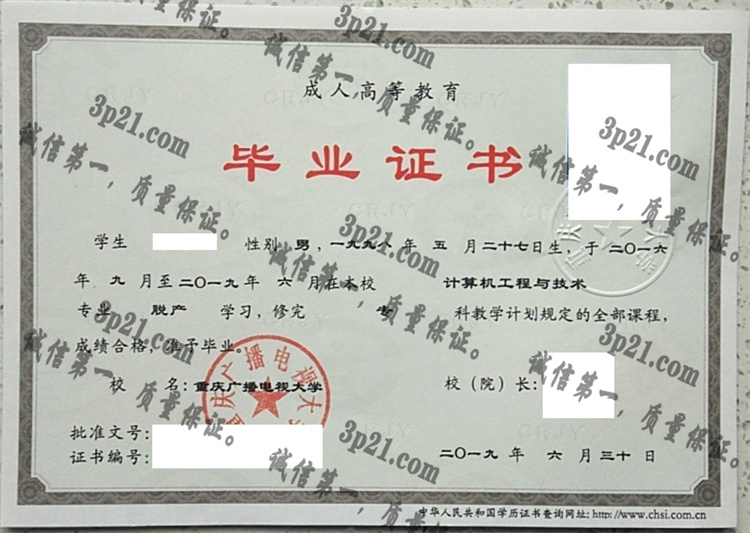 成人高等教育
毕业证书
学生 性别 男，一九九八年 五 月二十七日生，于二〇一六
年 九 月至二〇一九年 六 月在本校 计算机工程与技术
专业 脱产 学习，修完 专 科教学计划规定的全部课程，
成绩合格，准予毕业。
校 名：重庆广播电视大学 校（院）长：
批准文号：
证书编号： 二〇一九年 六 月三十日
中华人民共和国学历证书查询网址：http://www.chsi.com.cn
3p21.com
诚信第一，质量保证。
3p21.com
诚信第一，质量保证。
3p21.com
诚信第一，质量保证。
3p21.com
诚信第一，质量保证。
3p21.com
诚信第一，质量保证。
3p21.com
诚信第一，质量保证。
3p21.com
诚信第一，质量保证。